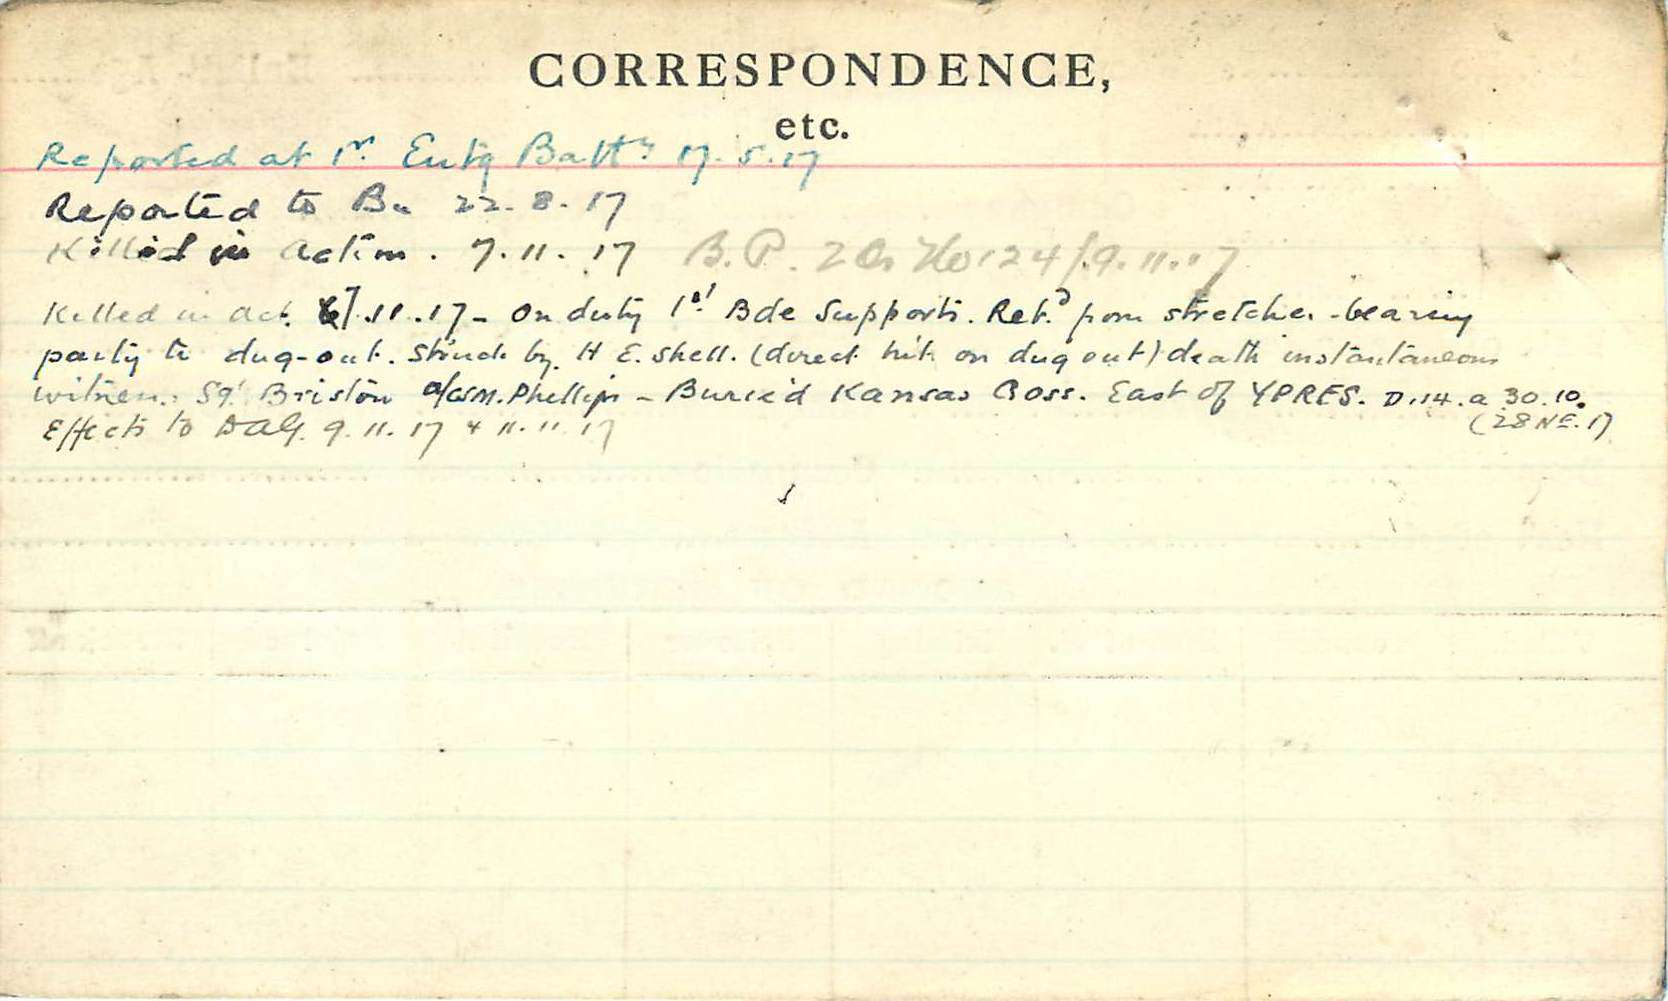 CORRESPONDENCE,
etc.
Reported at 1st Entg Battn 17.5.17
Reported to Bn 22.8.17
Killed in action. 7.11.17 B.P. 124/9.11.17
Killed in Act. 7.11.17 - On duty 1st Bde Supports. Retd from stretcher-bearing
party to dug-out. Struck by H E. shell. (direct hit on dug out) death instantaneous
witness. Sgt Briston a/CSM. Phillips - Buried Kansas Cross. East of YPRES. D.14.a 30.10.
(28 NE. 1)
Effects to DAG. 9.11.17 & 11.11.17